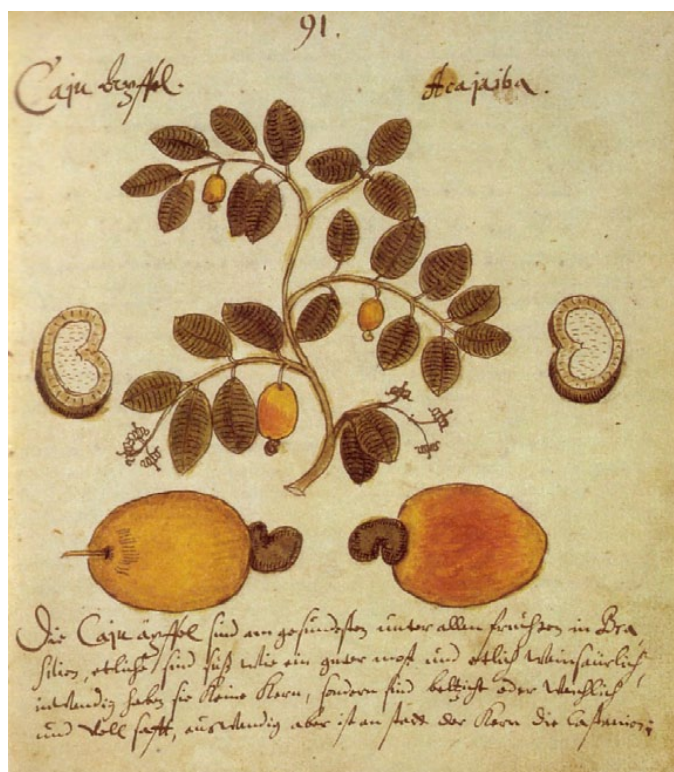 91.
Caju äpffel. Acajaiba.
Die Caju äpffel sind am gesündesten unter allen früchten in Bra,
silien, etliche sind süß wie ein guter most und etlich Weinsäurlich,
inwendig haben sie Keine Kern, sondern sind beltzicht oder
und voll safft, auswendig aber ist an statt der Kern die Castanien;